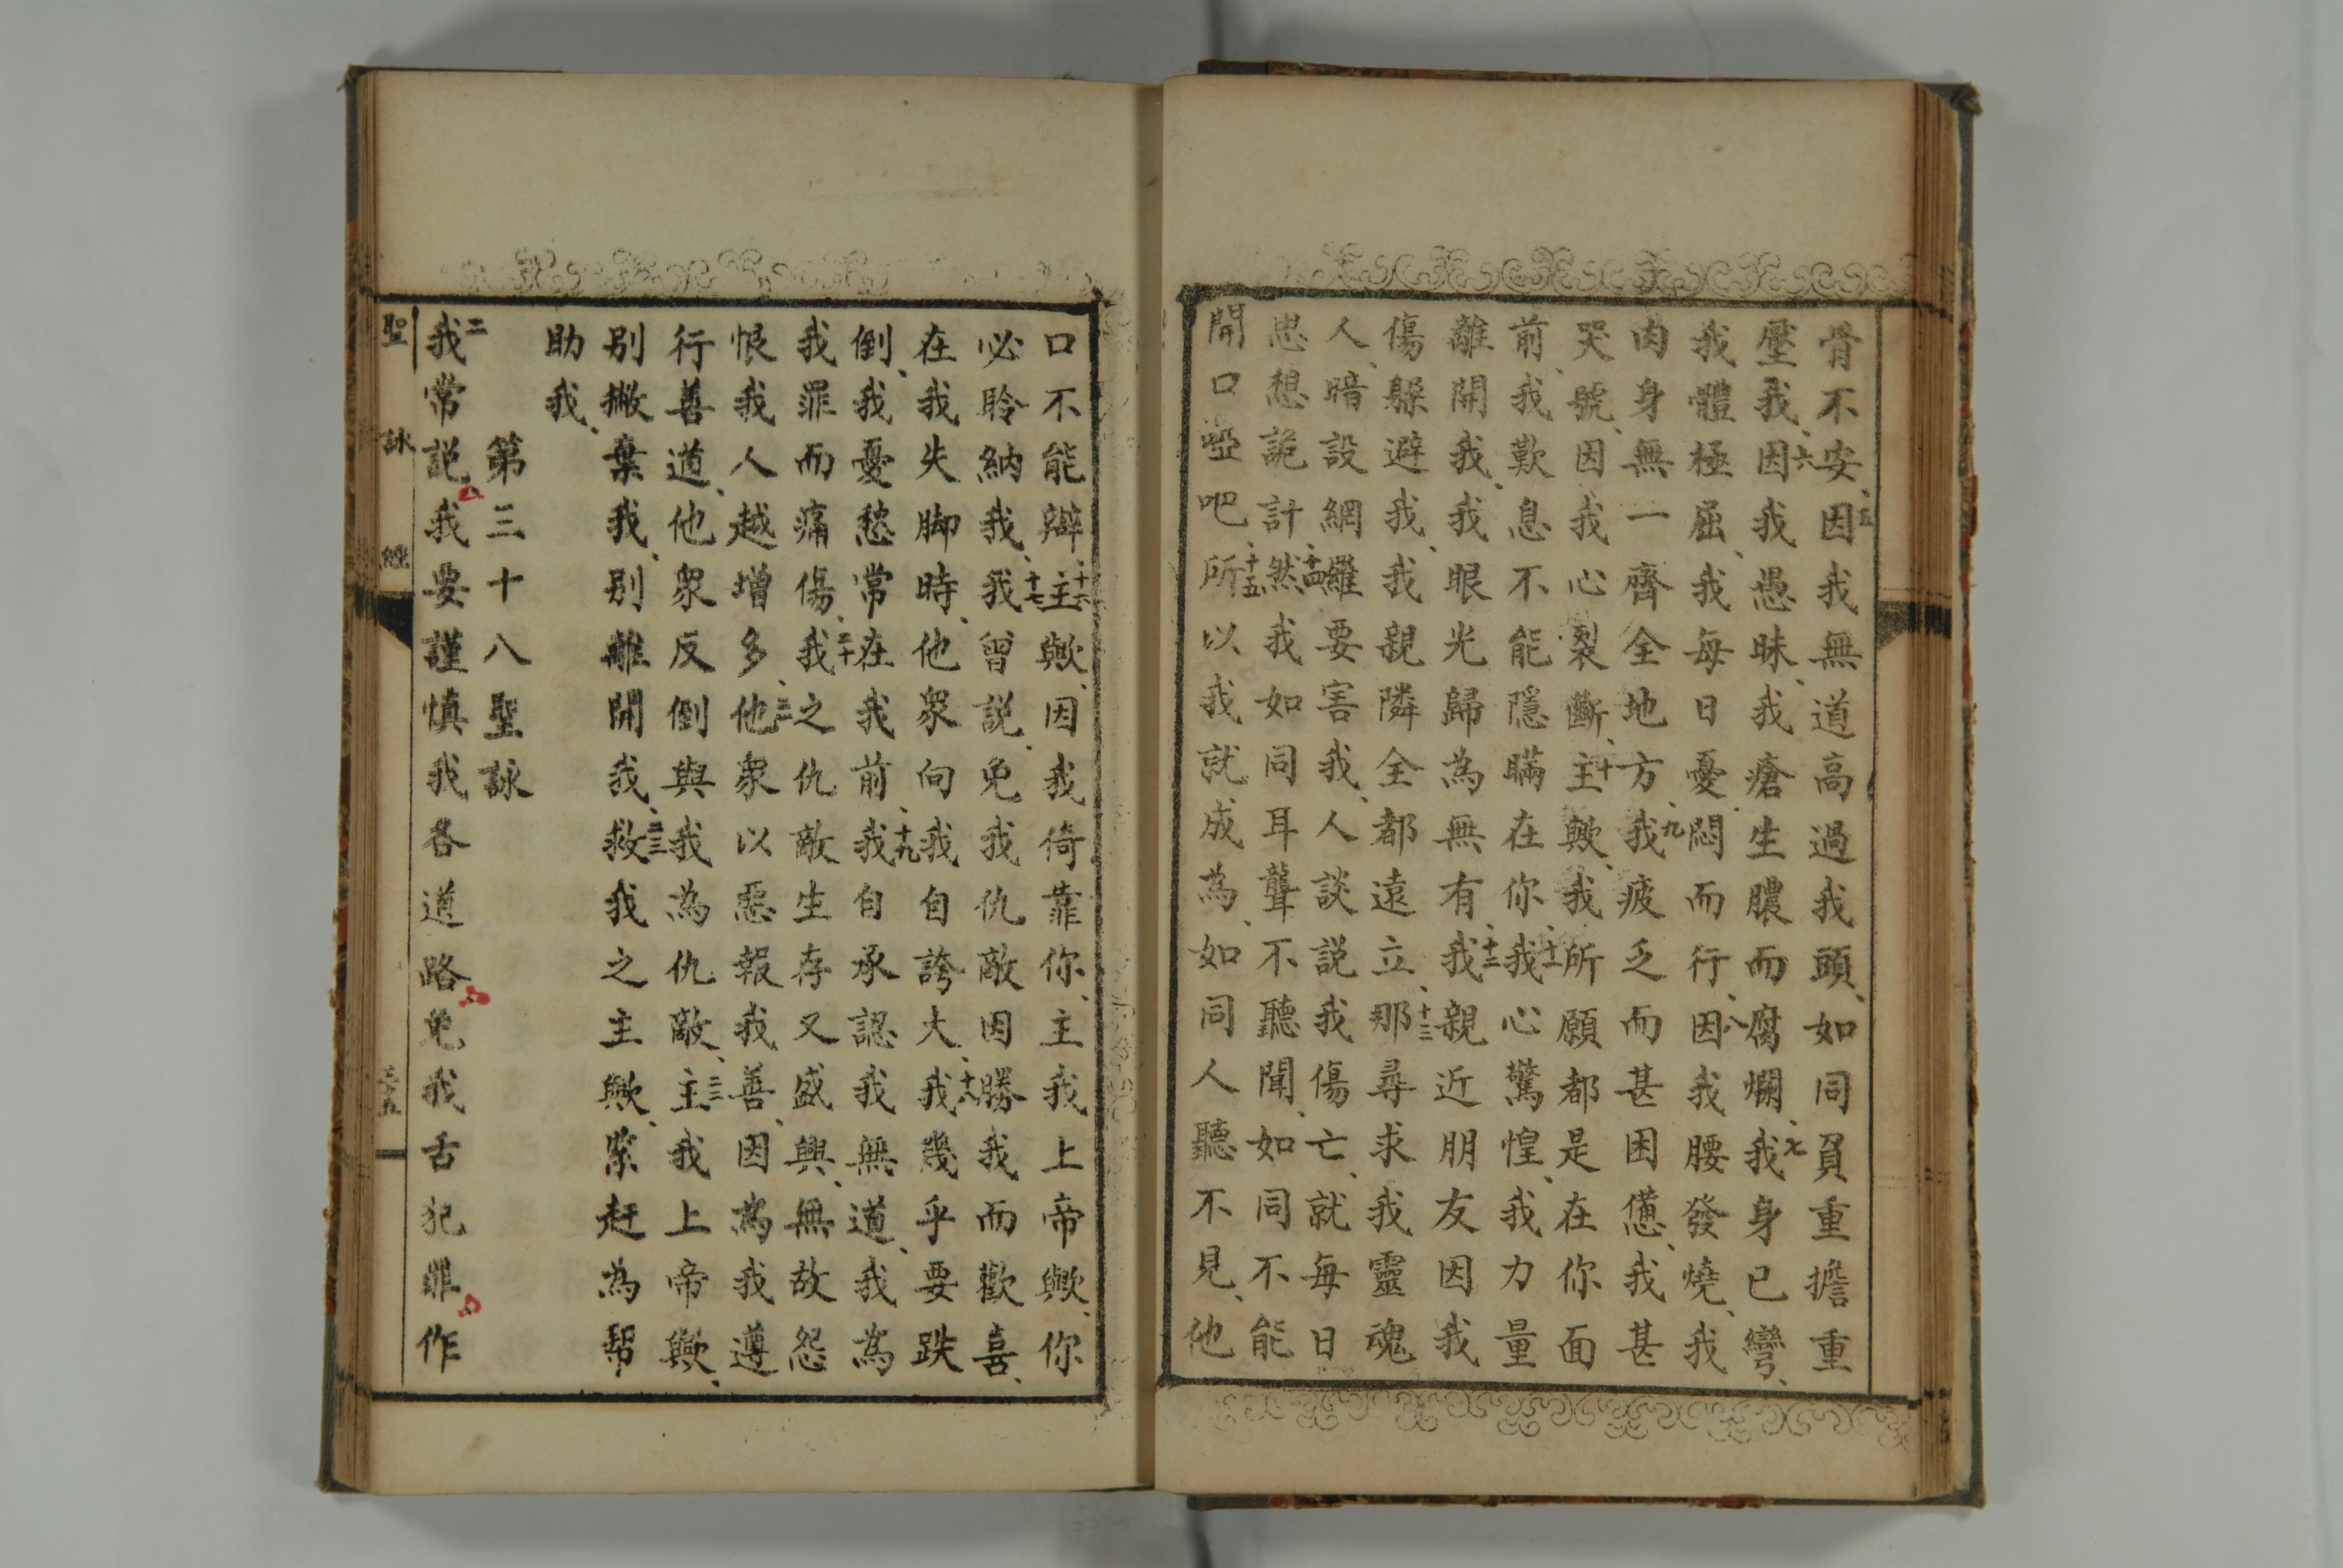 骨不安、五因我無道高過我頭、如同負重擔重
壓我、六因我愚昧、我瘡生膿而腐爛、七我身已彎、
我體極屈、我每日憂悶而行、八因我腰發燒、我
肉身無一齊全地方、九我疲乏而甚困憊、我甚
哭號、因我心裂斷、十主歟、我所願都是在你面
前、我歎息不能隱瞞在你、十一我心驚惶、我力量
離開我、我眼光歸為無有、十二我親近朋友因我
傷躲避我、我親隣全都遠立、十三那尋求我靈魂
人、暗設網羅要害我、人談説我傷亡、就每日
思想詭計、十四然我如同耳聾不聽聞、如同不能
開口啞吧、十五所以我就成為、如同人聽不見、他
口不能辯、十六主歟、因我倚靠你、主我上帝歟、你
必聆納我、十七我曾説、免我仇敵因勝我而歡喜、
在我失脚時、他衆向我自誇大、十八我幾乎要跌
倒、我憂愁常在我前、十九我自承認我無道、我為
我罪而痛傷、二十我之仇敵生存又盛興、無故怨
恨我人越增多、他衆以惡報我善、因為我遵
行善道、他衆反倒與我為仇敵、主我上帝歟、
别撇棄我、别離開我、救我之主歟、緊赶為幫
助我、
第三十八聖詠
二我常説我要謹慎我各道路免我舌犯罪作
聖詠經